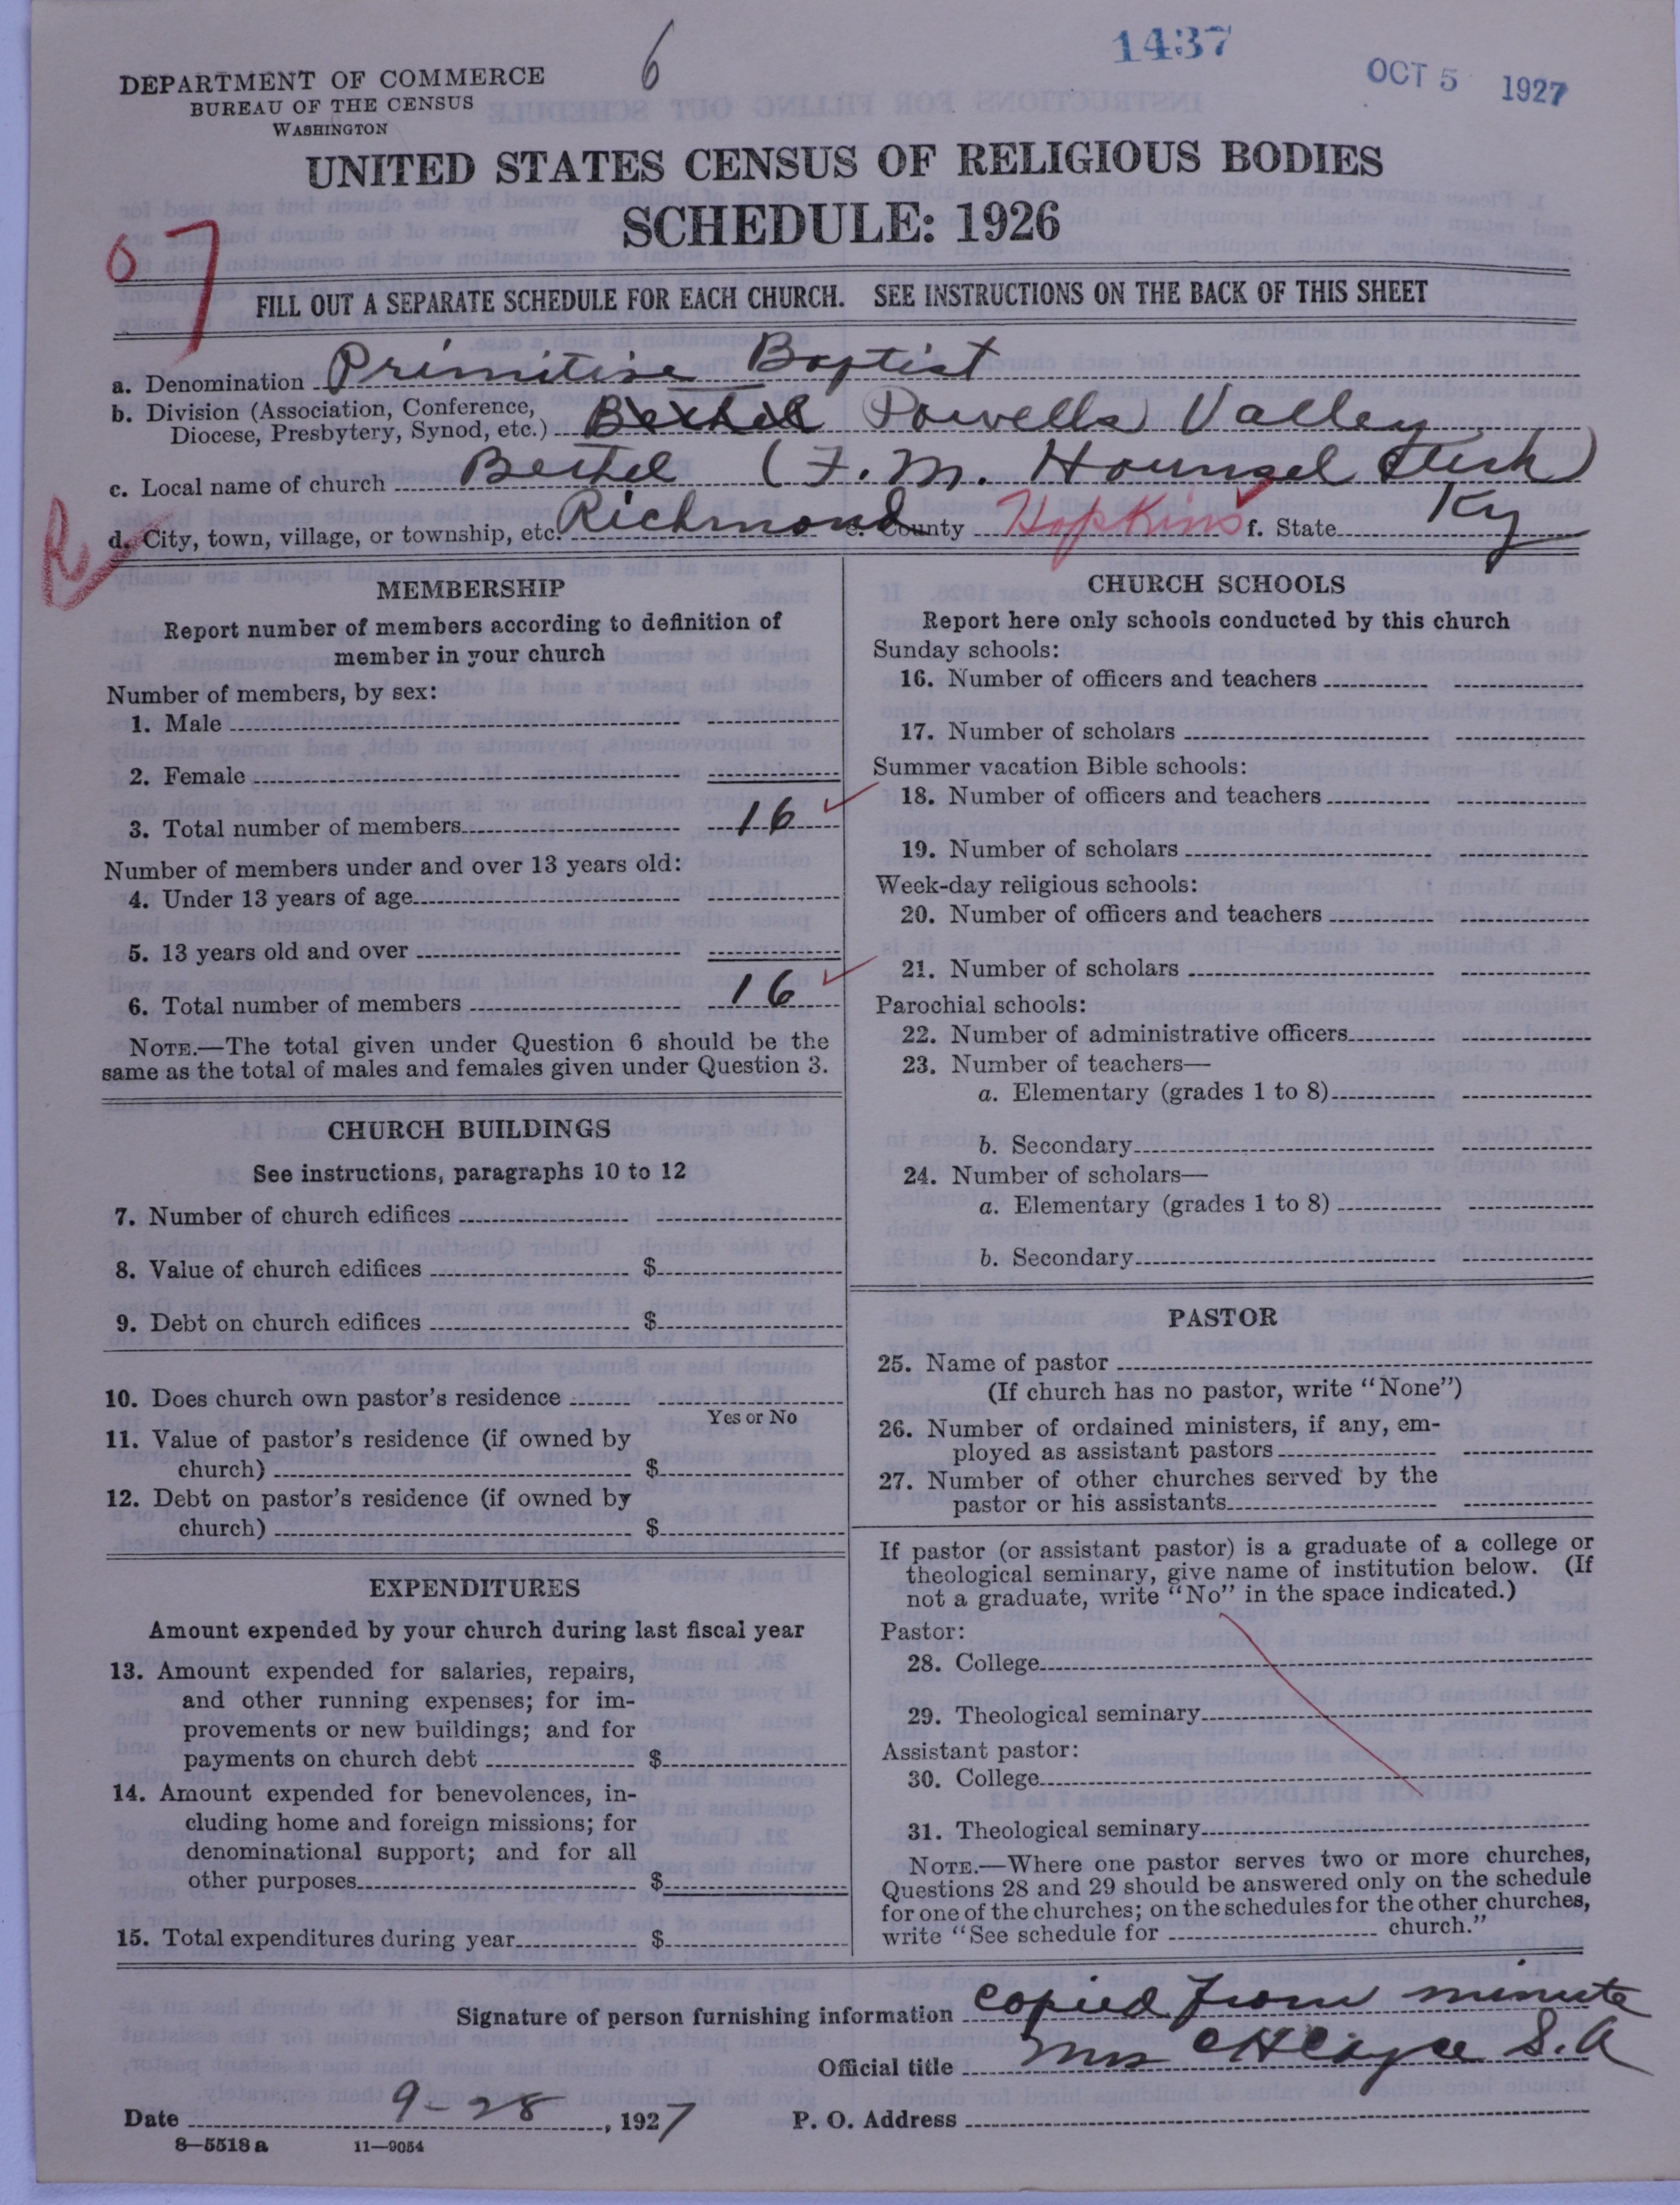 6
1437
OCT 5 1927
DEPARTMENT OF COMMERCE
BUREAU OF THE CENSUS
WASHINGTON
UNITED STATES CENSUS OF RELIGIOUS BODIES
SCHEDULE: 1926
FILL OUT A SEPARATE SCHEDULE FOR EACH CHURCH. SEE INSTRUCTIONS ON THE BACK OF THIS SHEET
a. Denomination Primitive Baptist
b. Division (Association, Conference,
Diocese, Presbytery, Synod, etc.) Bethel Powells Valley
c. Local name of church Bethel (F. M. Hounsel Clerk)
d. City, town, village, or township, etc. Richmond e. County Hopkins f. State Ky
MEMBERSHIP
Report number of members according to definition of
member in your church
Number of members, by sex:
1. Male
2. Female
3. Total number of members 16
Number of members under and over 13 years old:
4. Under 13 years of age
5. 13 years old and over
6. Total number of members 16
NOTE.—The total given under Question 6 should be the
same as the total of males and females given under Question 3.
CHURCH BUILDINGS
See instructions, paragraphs 10 to 12
7. Number of church edifices
8. Value of church edifices $
9. Debt on church edifices $
10. Does church own pastor's residence
Yes or No
11. Value of pastor's residence (if owned by
church) $
12. Debt on pastor's residence (if owned by
church) $
EXPENDITURES
Amount expended by your church during last fiscal year
13. Amount expended for salaries, repairs,
and other running expenses; for im-
provements or new buildings; and for
payments on church debt $
14. Amount expended for benevolences, in-
cluding home and foreign missions; for
denominational support; and for all
other purposes $
15. Total expenditures during year $
CHURCH SCHOOLS
Report here only schools conducted by this church
Sunday schools:
16. Number of officers and teachers
17. Number of scholars
Summer vacation Bible schools:
18. Number of officers and teachers
19. Number of scholars
Week-day religious schools:
20. Number of officers and teachers
21. Number of scholars
Parochial schools:
22. Number of administrative officers
23. Number of teachers—
a. Elementary (grades 1 to 8)
b. Secondary
24. Number of scholars—
a. Elementary (grades 1 to 8)
b. Secondary
PASTOR
25. Name of pastor
(If church has no pastor, write "None")
26. Number of ordained ministers, if any, em-
ployed as assistant pastors
27. Number of other churches served by the
pastor or his assistants
If pastor (or assistant pastor) is a graduate of a college or
theological seminary, give name of institution below. (If
not a graduate, write "No" in the space indicated.)
Pastor:
28. College
29. Theological seminary
Assistant pastor:
30. College
31. Theological seminary
NOTE.—Where one pastor serves two or more churches,
Questions 28 and 29 should be answered only on the schedule
for one of the churches; on the schedules for the other churches,
write "See schedule for church."
Signature of person furnishing information copied from minute
Official title Mrs C H Cayce S. A
Date 9-28, 1927 P. O. Address
8—5518 a 11—9054